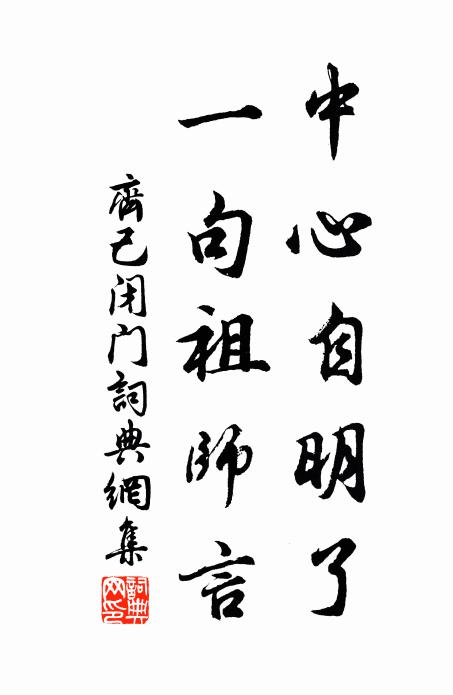 中心自明了
一句祖師言
齊己闭门詞典網集
詞典
网印